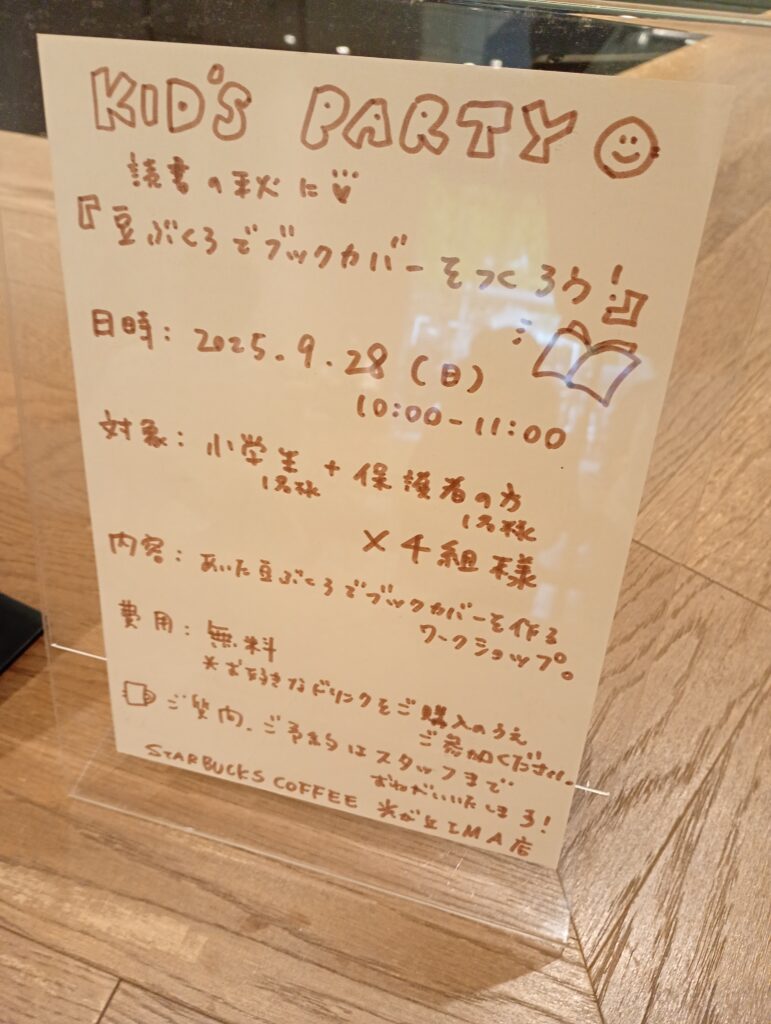 KID'S PARTY
読書の秋に
『豆ぶくろでブックカバーをつくろう!』
日時: 2025.9.28(日)
10:00-11:00
対象: 小学生 + 保護者の方
1名様 1名様
×4組様
内容: あいた豆ぶくろでブックカバーを作る
ワークショップ。
費用: 無料
*お好きなドリンクをご購入のうえ
ご参加ください。
ご質問、ご予約はスタッフまで
おねがいいたします!
STARBUCKS COFFEE 光が丘IMA店